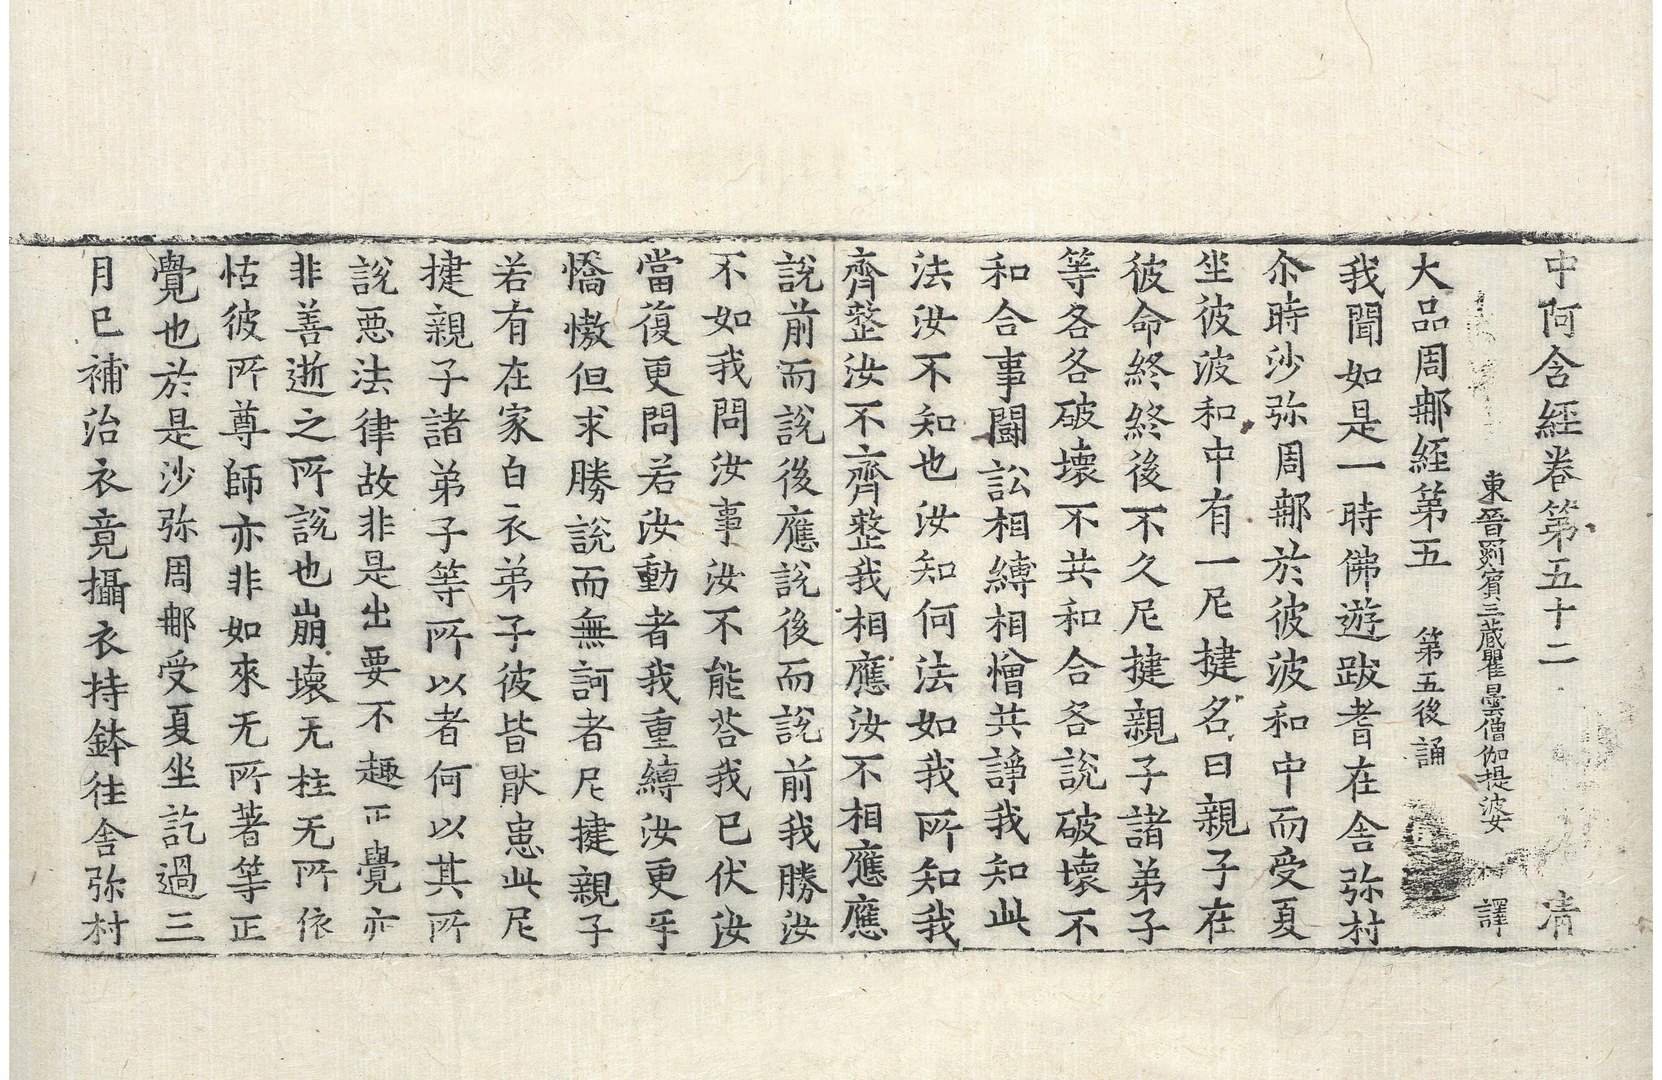 中阿含經卷第五十二 清
東晉罽賓三藏瞿曇僧伽提婆 譯
大品周郍經第五 第五後誦
我聞如是一時佛遊跋耆在舎弥村
尒時沙弥周郍於彼波和中而受夏
坐彼波和中有一尼揵名曰親子在
彼命終終後不久尼揵親子諸弟子
等各各破壞不共和合各說破壞不
和合事闘訟相縛相憎共諍我知此
法汝不知也汝知何法如我所知我
齊整汝不齊整我相應汝不相應應
說前而說後應說後而說前我勝汝
不如我問汝事汝不能荅我已伏汝
當復更問若汝動者我重縛汝更乎
憍慠但求勝說而無訶者尼揵親子
若有在家白衣弟子彼皆猒患此尼
揵親子諸弟子等所以者何以其所
說惡法律故非是出要不趣正覺亦
非善逝之所說也崩壞无柱无所依
怙彼所尊師亦非如來无所著等正
覺也於是沙弥周郍受夏坐訖過三
月已補治衣竟攝衣持鉢徃舎弥村